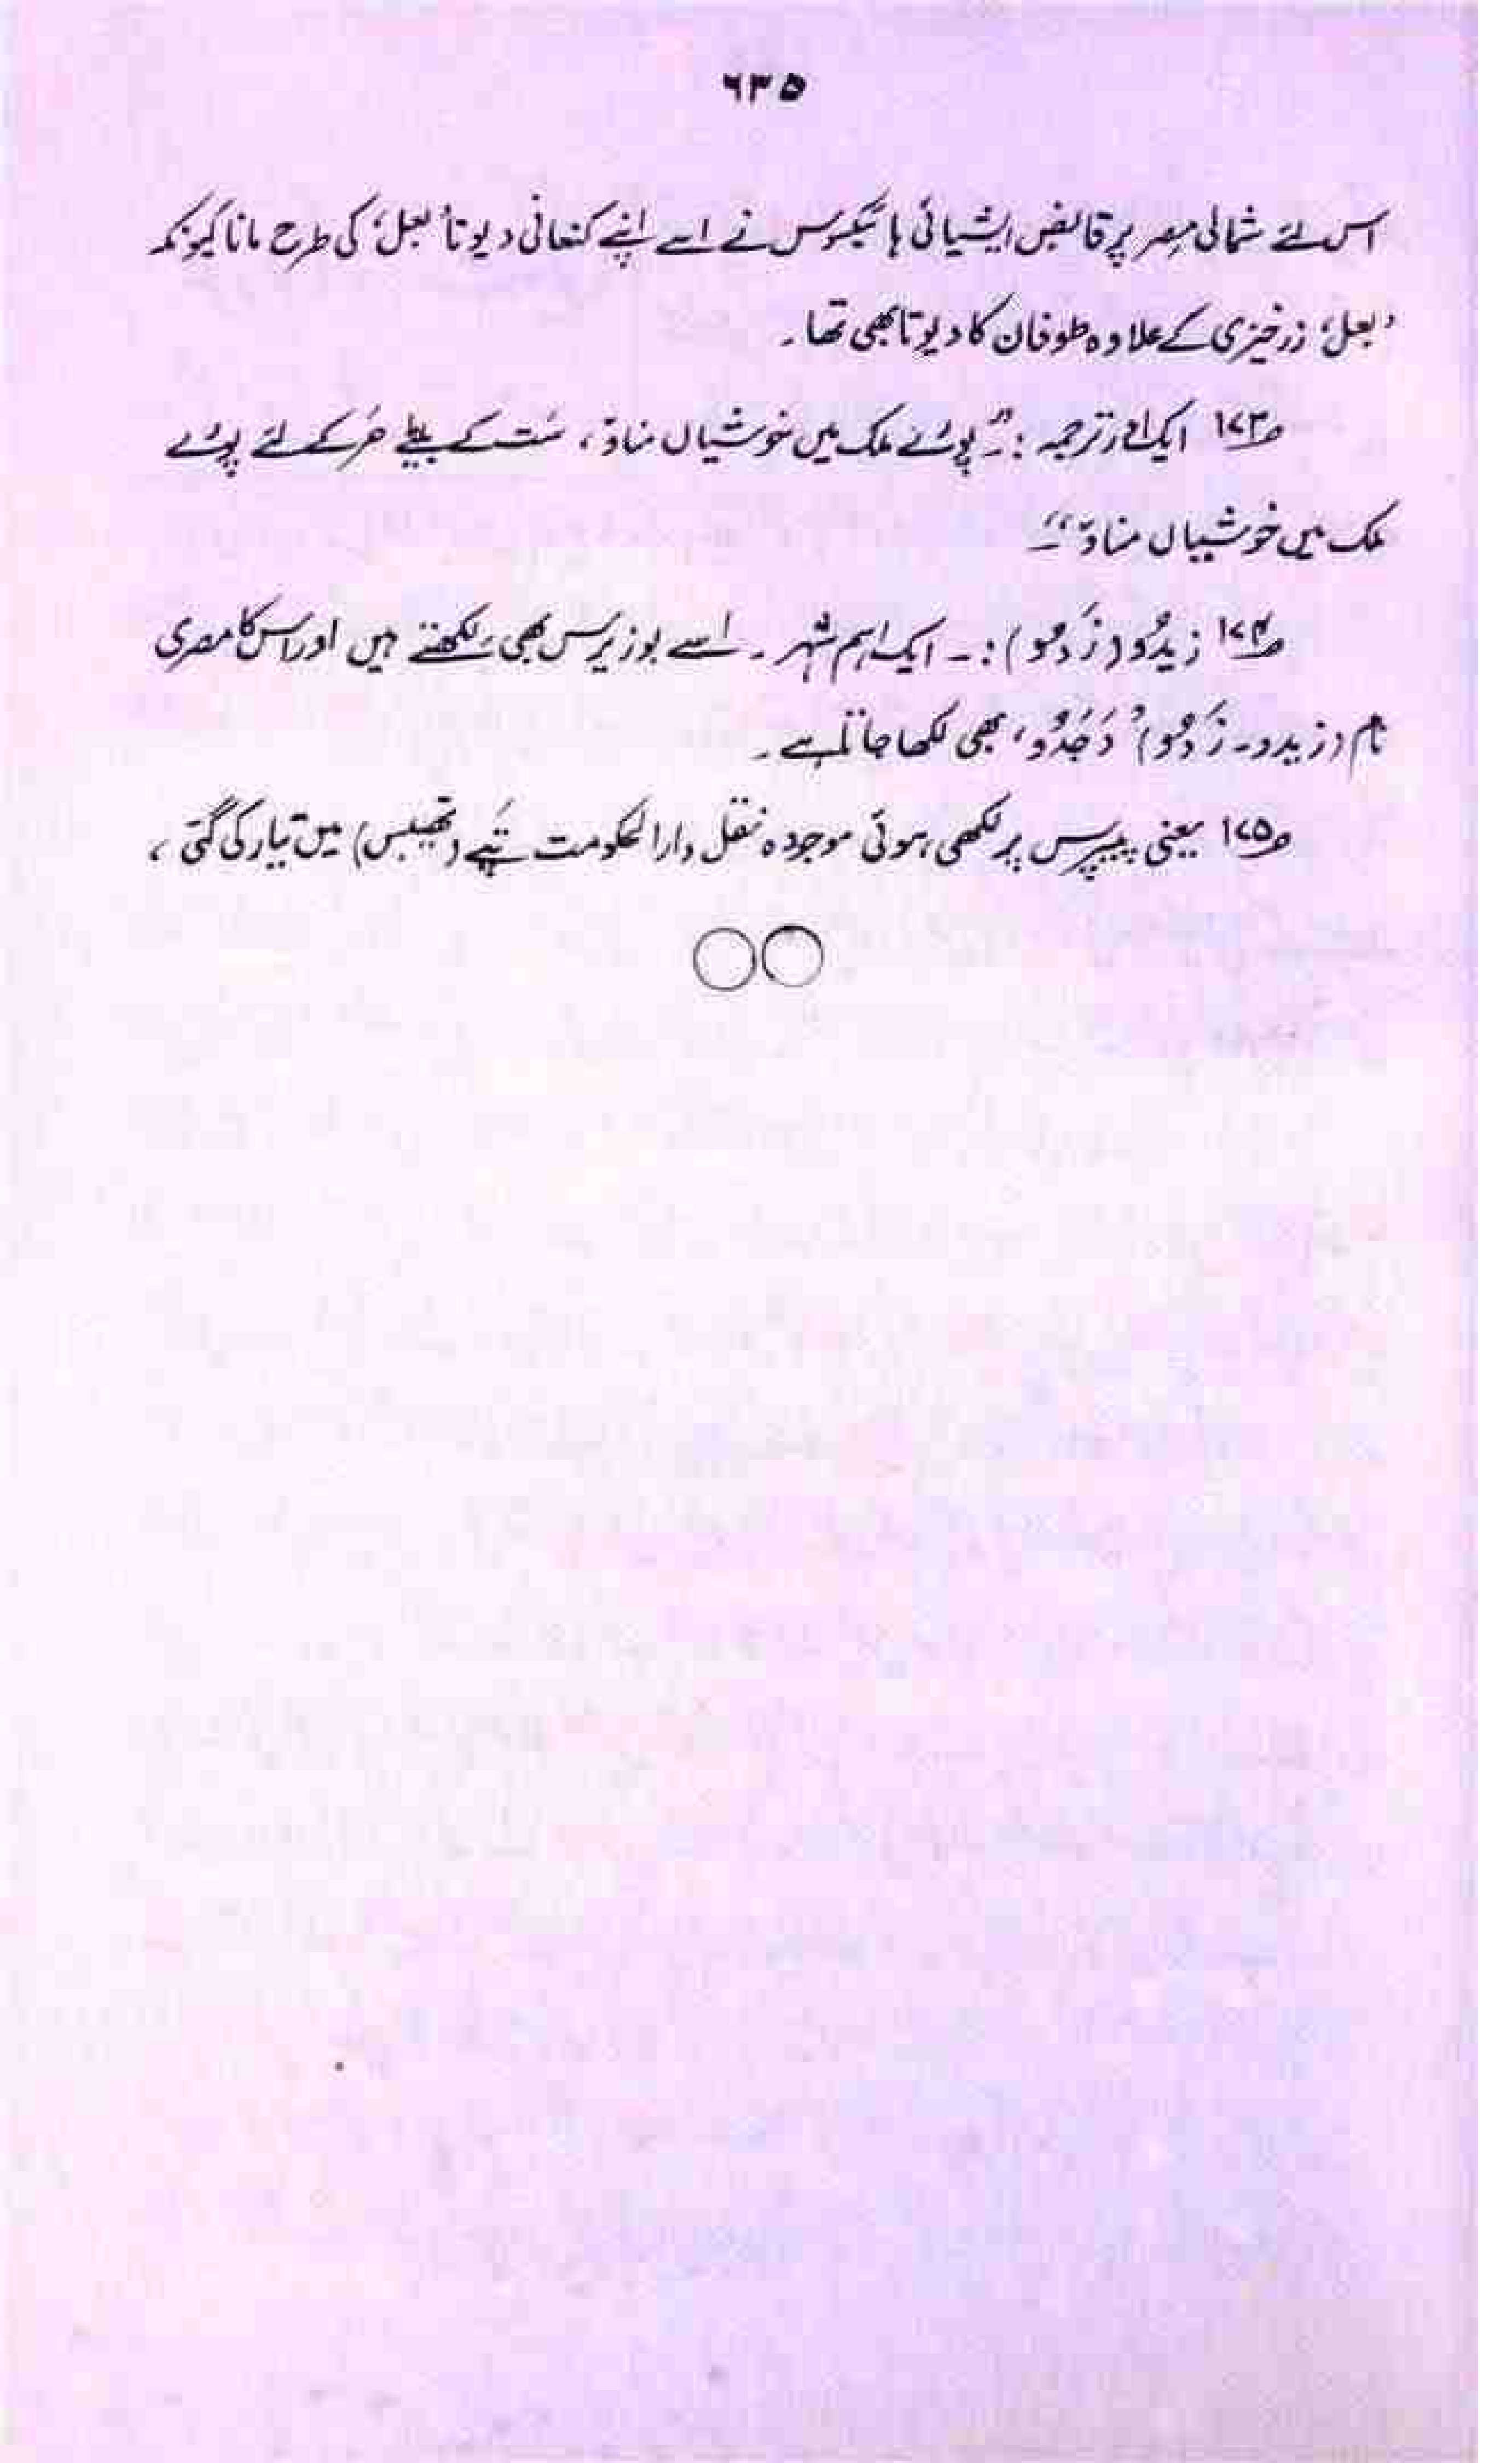 ۶۳۵
اس لئے شمالی مصر پر قابض ایشیائی ہائیکسوس نے اسے اپنے کنعانی دیوتا ’بعل‘ کی طرح مانا کیونکہ
’بعل‘ زرخیزی کے علاوہ طوفان کا دیوتا بھی تھا۔
ص۱۷۳ ایک اور ترجمہ :۔ ”پورے ملک میں خوشیاں مناؤ، ست کے بیٹے حر کے لئے پورے
ملک میں خوشیاں مناؤ“۔
ص۱۷۴ زیدُو (زَدمُو) :۔ ایک اہم شہر۔ اسے بوزیرس بھی لکھتے ہیں اور اس کا مصری
نام (زیدو۔ زَدمُو) ’دَجَدُو‘ بھی لکھا جاتا ہے۔
ص۱۷۵ یعنی پیپرس پر لکھی ہوئی موجودہ نقل دارالحکومت تپے (تھیبس) میں تیار کی گئی،